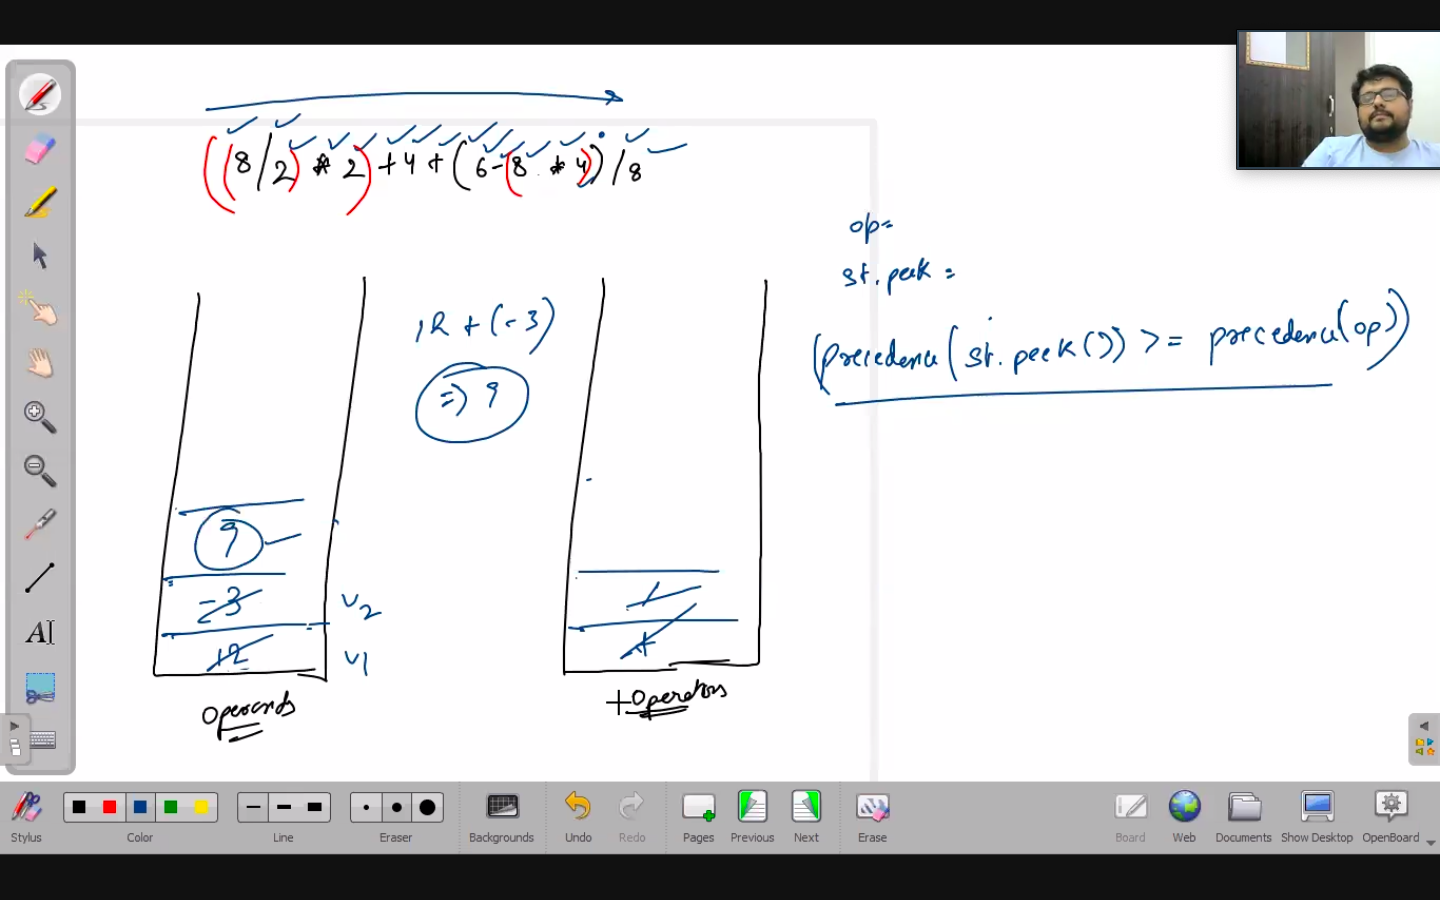 ((8/2) * 2) + 4 + (6-(8 * 4)) / 8
op=
st.peek =
12 + (-3)
(precedence(st.peek()) >= precedence(op))
=> 9
9
-3 V2
/
12 V1
+
Operands
+Operators
A
Stylus
Color
Line
Eraser
Backgrounds
Undo
Redo
Pages
Previous
Next
Erase
Board
Web
Documents
Show Desktop
OpenBoard